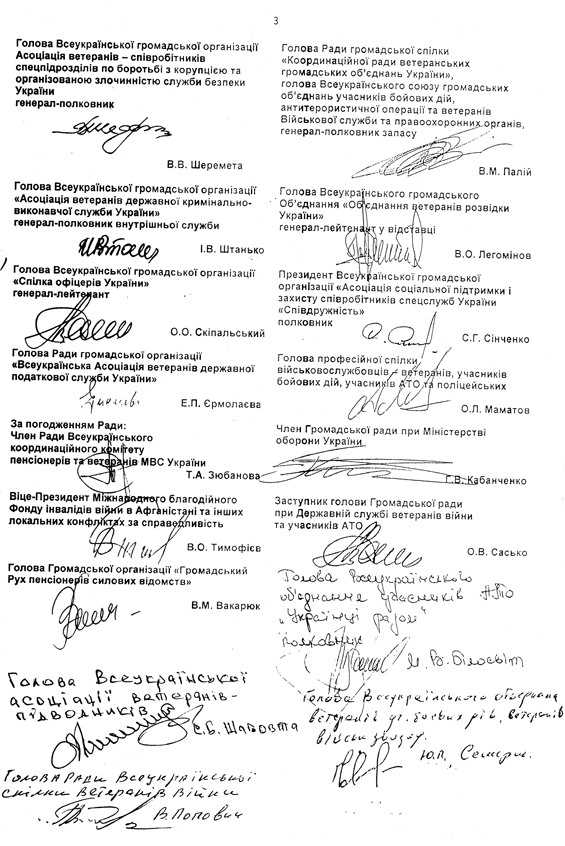 3
Голова Всеукраїнської громадської організації
Асоціація ветеранів – співробітників
спецпідрозділів по боротьбі з корупцією та
організованою злочинністю служби безпеки
України
генерал-полковник
В.В. Шеремета
Голова Всеукраїнської громадської організації
«Асоціація ветеранів державної кримінально-
виконавчої служби України»
генерал-полковник внутрішньої служби
І.В. Штанько
Голова Всеукраїнської громадської організації
«Спілка офіцерів України»
генерал-лейтенант
О.О. Скіпальський
Голова Ради громадської організації
«Всеукраїнська Асоціація ветеранів державної
податкової служби України»
Е.П. Єрмолаєва
За погодженням Ради:
Член Ради Всеукраїнського
координаційного комітету
пенсіонерів та ветеранів МВС України
Т.А. Зюбанова
Віце-Президент Міжнародного благодійного
Фонду інвалідів війни в Афганістані та інших
локальних конфліктах за справедливість
В.О. Тимофієв
Голова Громадської організації «Громадський
Рух пенсіонерів силових відомств»
В.М. Вакарюк
Голова Всеукраїнської
асоціації ветеранів-
підводників
Є.Б. Шаповта
Голова Ради Всеукраїнської
спілки Ветеранів Війни
В. Попович
Голова Ради громадської спілки
«Координаційної ради ветеранських
громадських об'єднань України»,
голова Всеукраїнського союзу громадських
об'єднань учасників бойових дій,
антитерористичної операції та ветеранів
Військової служби та правоохоронних органів,
генерал-полковник запасу
В.М. Палій
Голова Всеукраїнського громадського
Об'єднання «Об'єднання ветеранів розвідки
України»
генерал-лейтенант у відставці
В.О. Легомінов
Президент Всеукраїнської громадської
організації «Асоціація соціальної підтримки і
захисту співробітників спецслужб України
«Співдружність»
полковник
С.Г. Сінченко
Голова професійної спілки
військовослужбовців – ветеранів, учасників
бойових дій, учасників АТО та поліцейських
О.Л. Маматов
Член Громадської ради при Міністерстві
оборони України
Г.В. Кабанченко
Заступник голови Громадської ради
при Державній службі ветеранів війни
та учасників АТО
О.В. Сасько
Голова Всеукраїнського
об'єднання учасників АТО
„Українці разом"
полковник
І. В. Білосвіт
Голова Всеукраїнського
ветеранів ветеранів
військ
Ю.А.